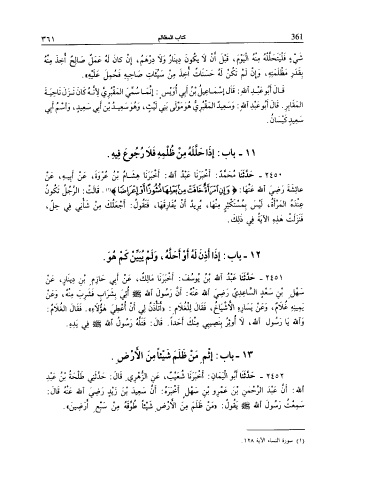 361
كتاب المظالم
٣٦١
شَيْءٍ فَلْيَتَحَلَّلْهُ مِنْهُ الْيَوْمَ، قَبْلَ أَنْ لَا يَكُونَ دِينَارٌ وَلَا دِرْهَمٌ، إِنْ كَانَ لَهُ عَمَلٌ صَالِحٌ أُخِذَ مِنْهُ
بِقَدْرِ مَظْلَمَتِهِ، وَإِنْ لَمْ تَكُنْ لَهُ حَسَنَاتٌ أُخِذَ مِنْ سَيِّئَاتِ صَاحِبِهِ فَحُمِلَ عَلَيْهِ».
قَالَ أَبُو عَبْدِ اللهِ: قَالَ إِسْمَاعِيلُ بْنُ أَبِي أُوَيْسٍ: إِنَّمَا سُمِّيَ الْمَقْبُرِيَّ لِأَنَّهُ كَانَ نَزَلَ نَاحِيَةَ
الْمَقَابِرِ. قَالَ أَبُو عَبْدِ اللهِ: وَسَعِيدٌ الْمَقْبُرِيُّ هُوَ مَوْلَى بَنِي لَيْثٍ، وَهُوَ سَعِيدُ بْنُ أَبِي سَعِيدٍ، وَاسْمُ أَبِي
سَعِيدٍ كَيْسَانُ.
١١ - باب: إِذَا حَلَّلَهُ مِنْ ظُلْمِهِ فَلَا رُجُوعَ فِيهِ.
٢٤٥٠ - حَدَّثَنَا مُحَمَّدٌ: أَخْبَرَنَا عَبْدُ اللهِ: أَخْبَرَنَا هِشَامُ بْنُ عُرْوَةَ، عَنْ أَبِيهِ، عَنْ
عَائِشَةَ رَضِيَ اللهُ عَنْهَا: ﴿وَإِنِ امْرَأَةٌ خَافَتْ مِنْ بَعْلِهَا نُشُوزًا أَوْ إِعْرَاضًا﴾(١). قَالَتْ: الرَّجُلُ تَكُونُ
عِنْدَهُ الْمَرْأَةُ، لَيْسَ بِمُسْتَكْثِرٍ مِنْهَا، يُرِيدُ أَنْ يُفَارِقَهَا، فَتَقُولُ: أَجْعَلُكَ مِنْ شَأْنِي فِي حِلٍّ،
فَنَزَلَتْ هَذِهِ الْآيَةُ فِي ذَلِكَ.
١٢ - باب: إِذَا أَذِنَ لَهُ أَوْ أَحَلَّهُ، وَلَمْ يُبَيِّنْ كَمْ هُوَ.
٢٤٥١ - حَدَّثَنَا عَبْدُ اللهِ بْنُ يُوسُفَ: أَخْبَرَنَا مَالِكٌ، عَنْ أَبِي حَازِمِ بْنِ دِينَارٍ، عَنْ
سَهْلِ بْنِ سَعْدٍ السَّاعِدِيِّ رَضِيَ اللهُ عَنْهُ: أَنَّ رَسُولَ اللهِ ﷺ أُتِيَ بِشَرَابٍ فَشَرِبَ مِنْهُ، وَعَنْ
يَمِينِهِ غُلَامٌ، وَعَنْ يَسَارِهِ الْأَشْيَاخُ، فَقَالَ لِلْغُلَامِ: «أَتَأْذَنُ لِي أَنْ أُعْطِيَ هَؤُلَاءِ». فَقَالَ الْغُلَامُ:
وَاللهِ يَا رَسُولَ اللهِ، لَا أُوثِرُ بِنَصِيبِي مِنْكَ أَحَدًا. قَالَ: فَتَلَّهُ رَسُولُ اللهِ ﷺ فِي يَدِهِ.
١٣ - باب: إِثْمِ مَنْ ظَلَمَ شَيْئًا مِنَ الْأَرْضِ.
٢٤٥٢ - حَدَّثَنَا أَبُو الْيَمَانِ: أَخْبَرَنَا شُعَيْبٌ، عَنِ الزُّهْرِيِّ قَالَ: حَدَّثَنِي طَلْحَةُ بْنُ عَبْدِ
اللهِ: أَنَّ عَبْدَ الرَّحْمَنِ بْنَ عَمْرِو بْنِ سَهْلٍ أَخْبَرَهُ: أَنَّ سَعِيدَ بْنَ زَيْدٍ رَضِيَ اللهُ عَنْهُ قَالَ:
سَمِعْتُ رَسُولَ اللهِ ﷺ يَقُولُ: «مَنْ ظَلَمَ مِنَ الْأَرْضِ شَيْئًا طُوِّقَهُ مِنْ سَبْعِ أَرَضِينَ».
(١) سورة النساء الآية ١٢٨.